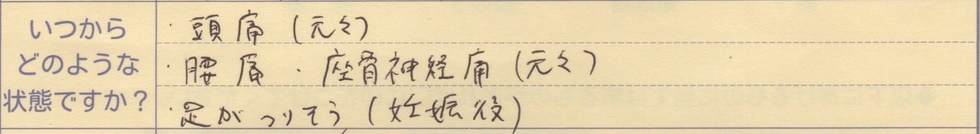 いつから
どのような
状態ですか？
・頭痛（元々）
・腰痛・座骨神経痛（元々）
・足がつりそう（妊娠後）